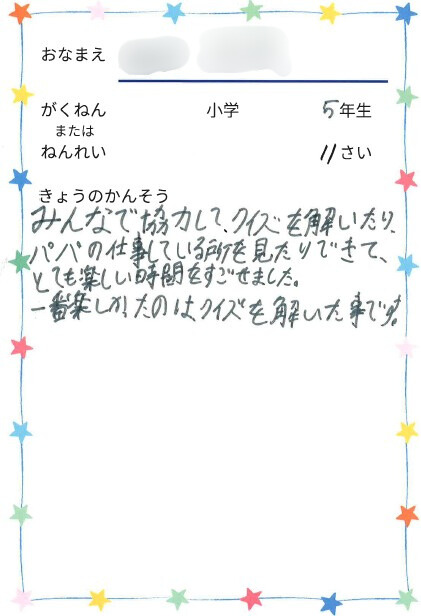 おなまえ
がくねん 小学 5年生
または
ねんれい 11さい
きょうのかんそう
みんなで協力して、クイズを解いたり、
パパの仕事している所を見たりできて、
とても楽しい時間をすごせました。
一番楽しかったのは、クイズを解いた事です。